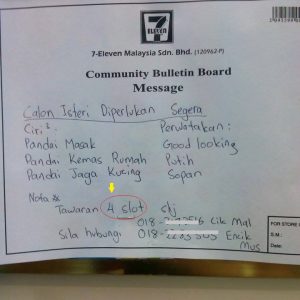 7
ELEVEn
7-Eleven Malaysia Sdn. Bhd. (120962-P)
Community Bulletin Board
Message
Calon Isteri Diperlukan Segera
Ciri²: Perwatakan:
Pandai Masak Good looking
Pandai Kemas Rumah Putih
Pandai Jaga Kucing Sopan
Nota *
Tawaran 4 slot shj
018- Cik Mal
Sila hubungi 018- Encik
Mus
FOR STORE
S.M:
Date: